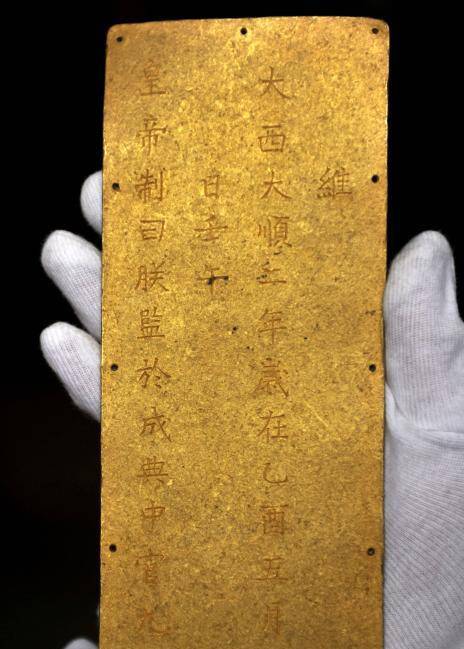 維
大西大順二年歲在乙酉五月
日壬午
皇帝制曰朕監於成典中宮九